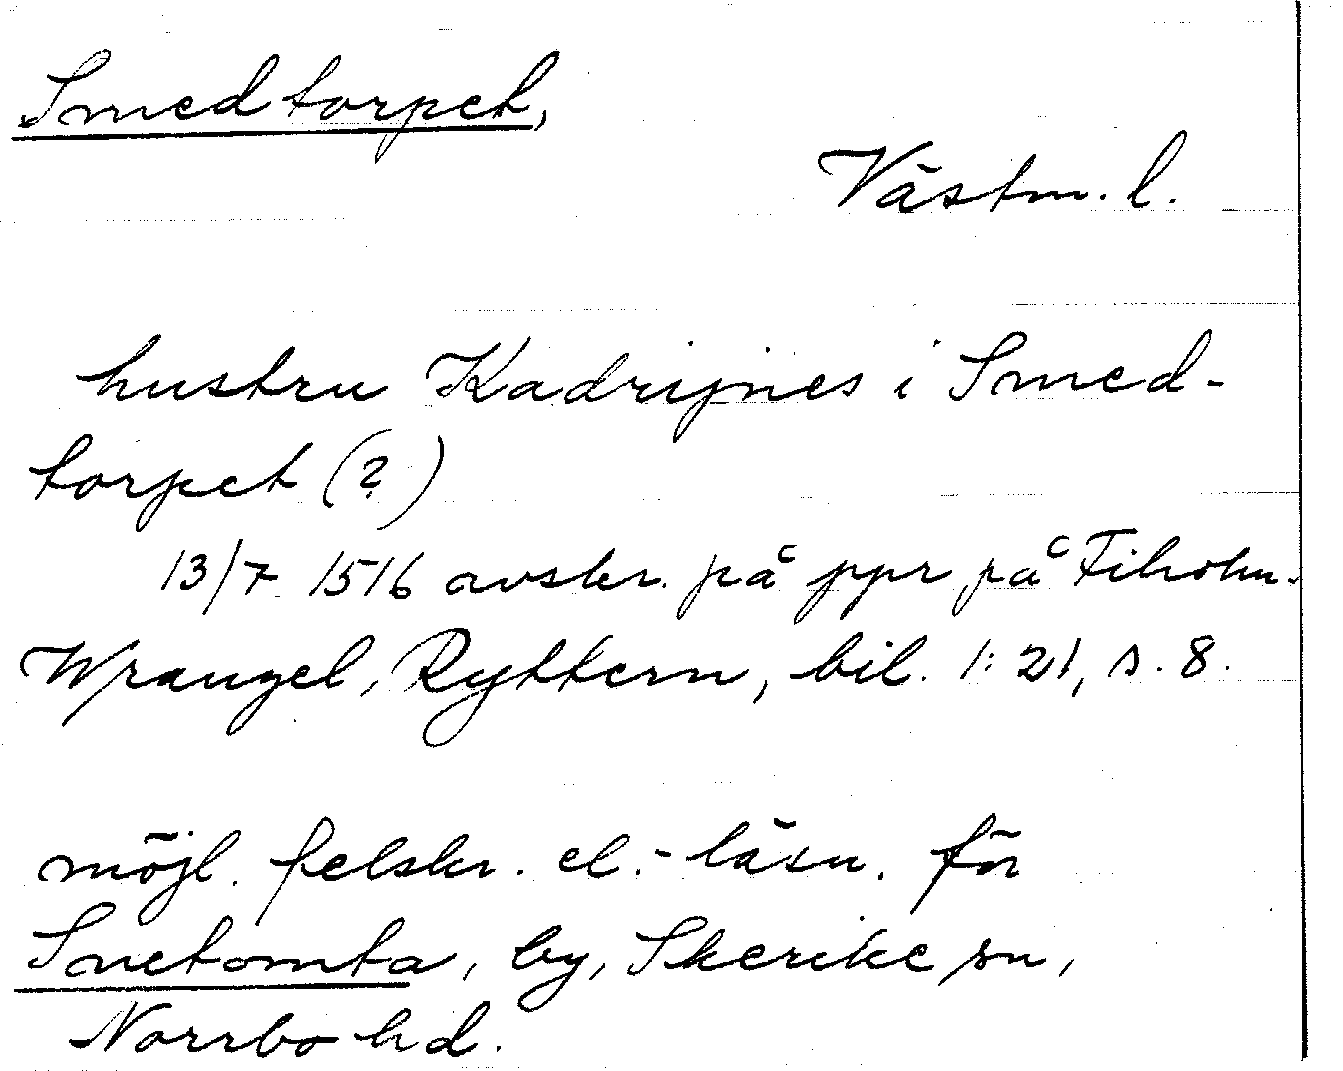 Smedtorpet,
Västm. l.
hustru Kadrijnes i Smed-
torpet (?)
13/7 1516 avskr. på ppr på Fiholm.
Wrangel, Ryttern, bil. 1:21, s. 8.
möjl. felskr. el. -läsn. för
Snetomta, by, Skerike sn,
Norrbo hd.